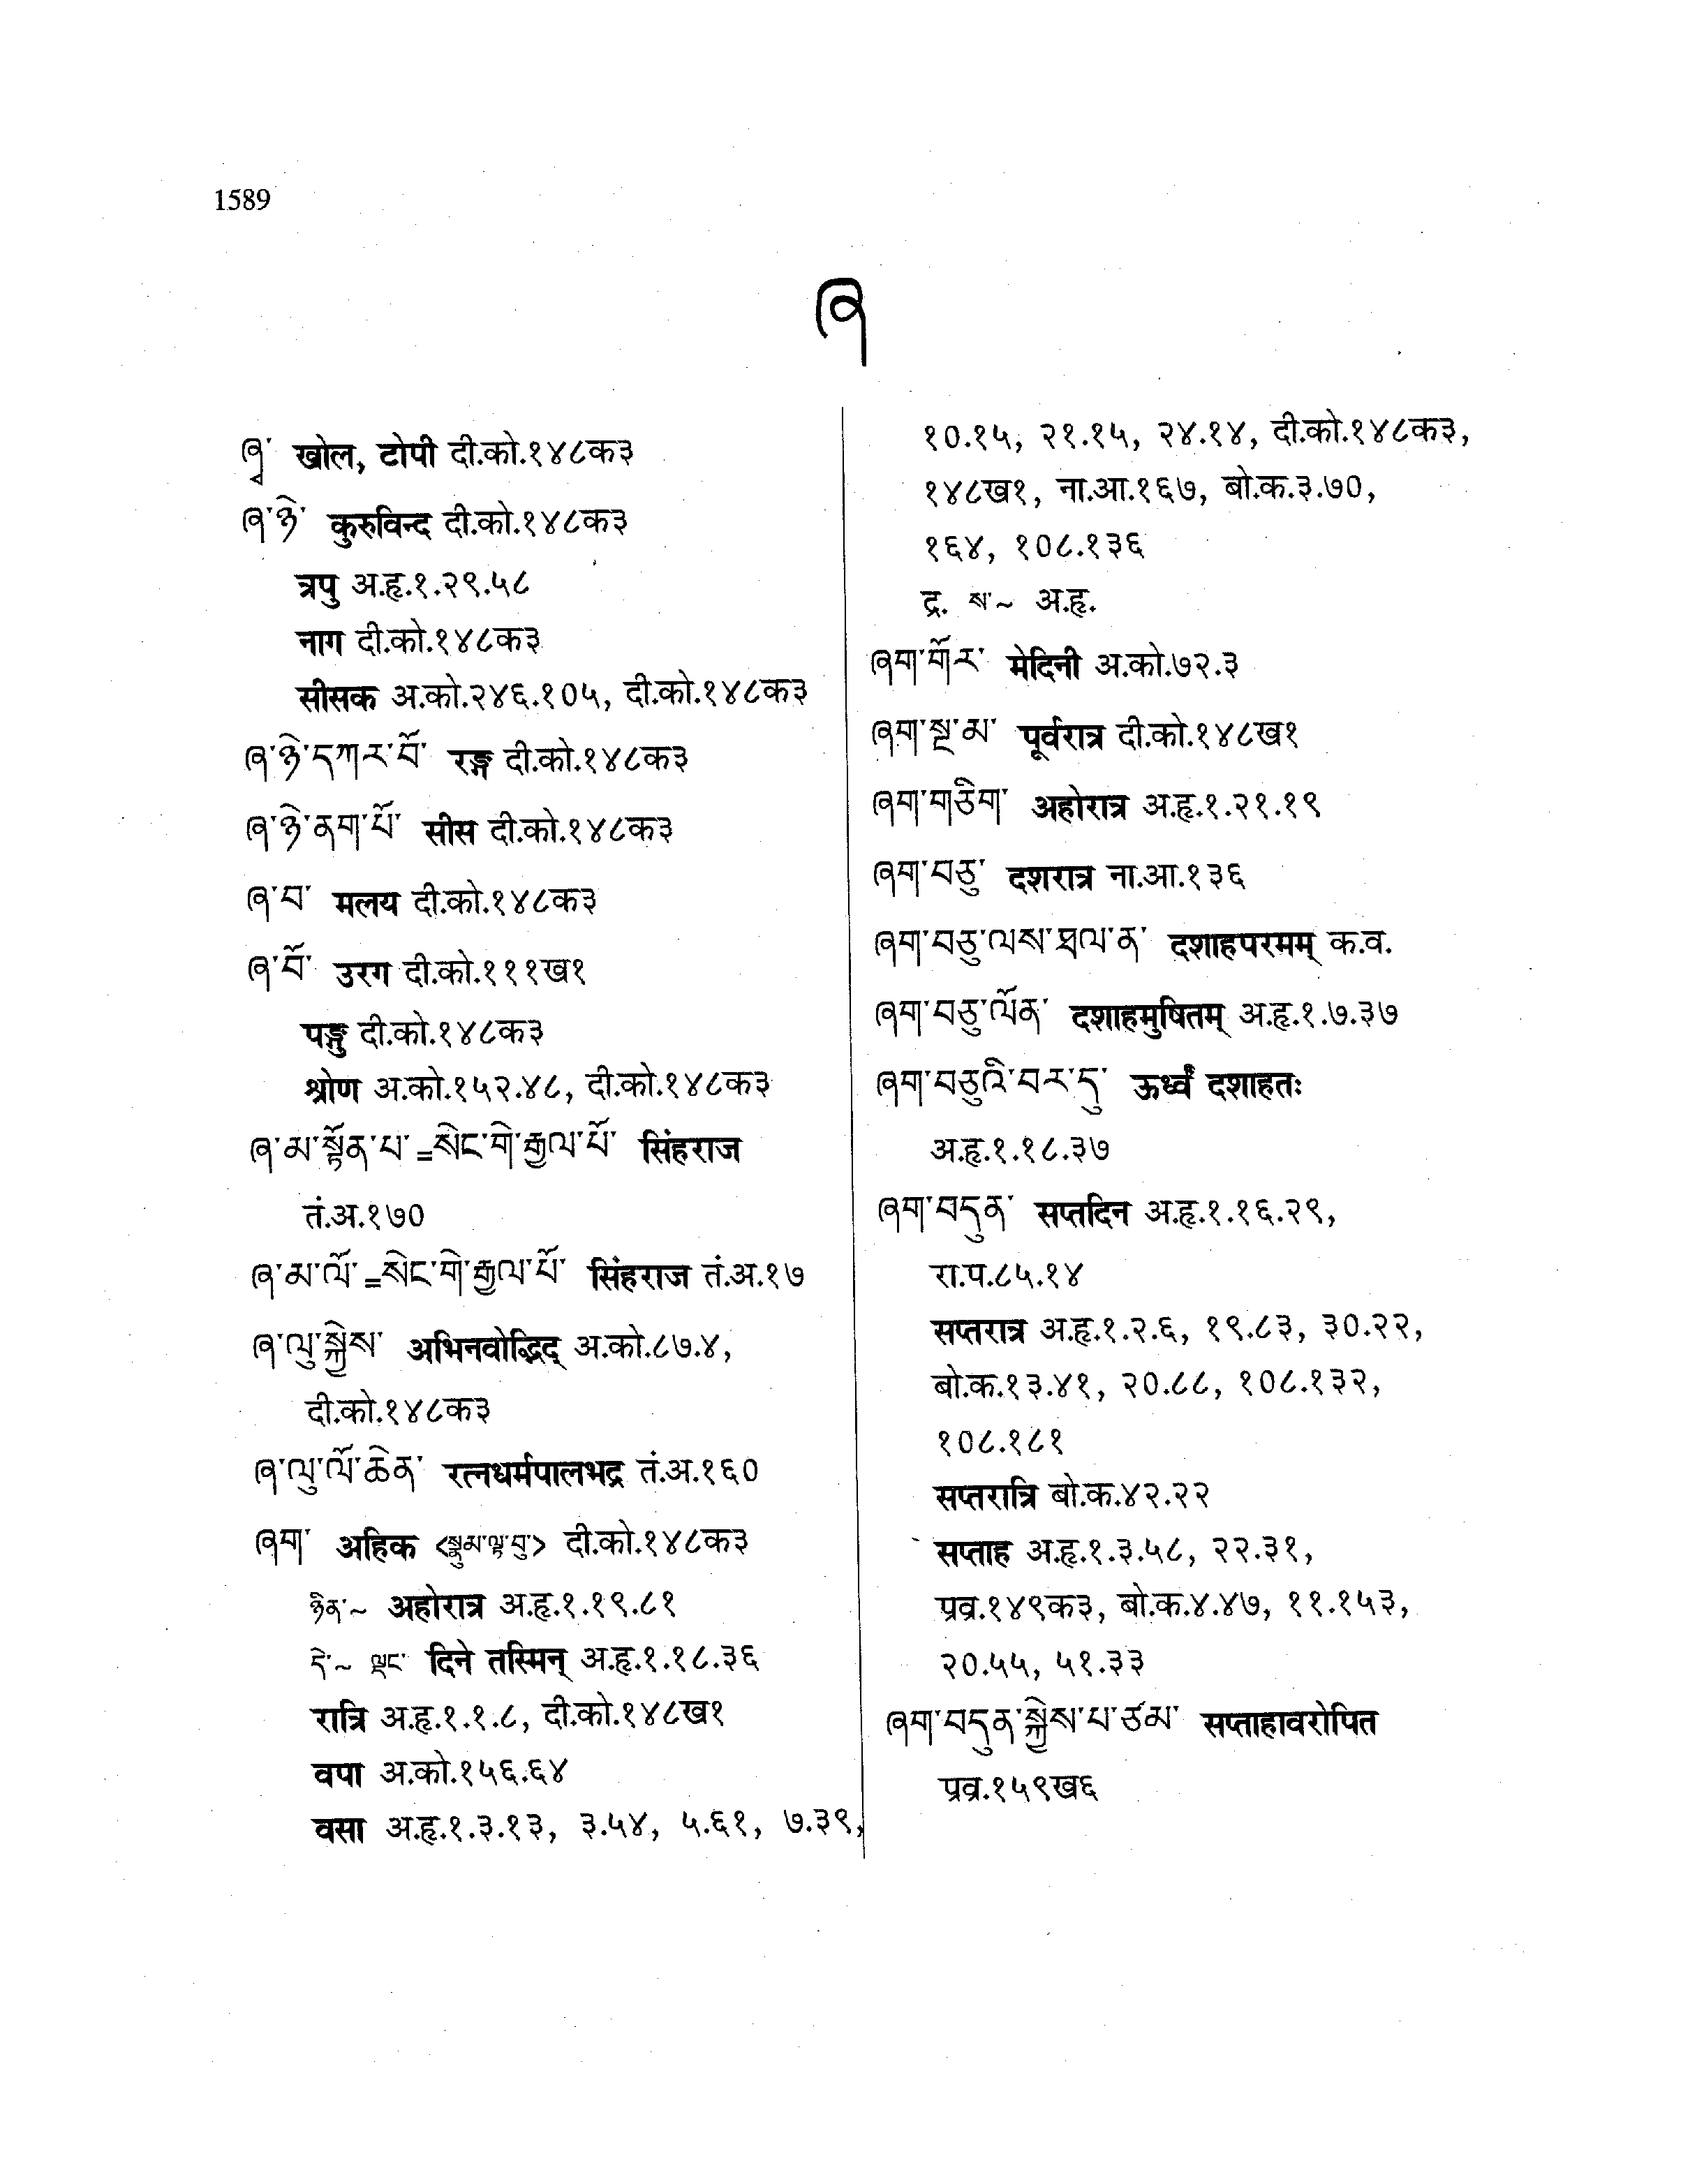 1589
ཞ
ཞྭ་ खोल, टोपी दी.को.१४८क३
ཞ་ཉེ་ कुरुविन्द दी.को.१४८क३
त्रपु अ.हृ.१.२९.५८
नाग दी.को.१४८क३
सीसक अ.को.२४६.१०५, दी.को.१४८क३
ཞ་ཉེ་དཀར་པོ་ रङ्ग दी.को.१४८क३
ཞ་ཉེ་ནག་པོ་ सीस दी.को.१४८क३
ཞ་བ་ मलय दी.को.१४८क३
ཞ་བོ་ उरग दी.को.१११ख१
पङ्गु दी.को.१४८क३
श्रोण अ.को.१५२.४८, दी.को.१४८क३
ཞ་མ་སྟོན་པ་=སེང་གེ་རྒྱལ་པོ་ सिंहराज
तं.अ.१७०
ཞ་མ་ལོ་=སེང་གེ་རྒྱལ་པོ་ सिंहराज तं.अ.१७
ཞ་ལུ་སྐྱེས་ अभिनवोद्भिद् अ.को.८७.४,
दी.को.१४८क३
ཞ་ལུ་ལོ་ཆེན་ रत्नधर्मपालभद्र तं.अ.१६०
ཞག་ अहिक <སྣུམ་ལྟ་བུ་> दी.को.१४८क३
ཉིན་~ अहोरात्र अ.हृ.१.१९.८१
དེ་~ ལྡང་ दिने तस्मिन् अ.हृ.१.१८.३६
रात्रि अ.हृ.१.१.८, दी.को.१४८ख१
वपा अ.को.१५६.६४
वसा अ.हृ.१.३.१३, ३.५४, ५.६१, ७.३९,
१०.१५, २१.१५, २४.१४, दी.को.१४८क३,
१४८ख१, ना.आ.१६७, बो.क.३.७०,
१६४, १०८.१३६
द्र. ས་~ अ.हृ.
ཞག་གོར་ मेदिनी अ.को.७२.३
ཞག་སྔ་མ་ पूर्वरात्र दी.को.१४८ख१
ཞག་གཅིག་ अहोरात्र अ.हृ.१.२१.१९
ཞག་བཅུ་ दशरात्र ना.आ.१३६
ཞག་བཅུ་ལས་ཐལ་ན་ दशाहपरमम् क.व.
ཞག་བཅུ་ལོན་ दशाहमुषितम् अ.हृ.१.७.३७
ཞག་བཅུའི་བར་དུ་ ऊर्ध्वं दशाहतः
अ.हृ.१.१८.३७
ཞག་བདུན་ सप्तदिन अ.हृ.१.१६.२९,
रा.प.८५.१४
सप्तरात्र अ.हृ.१.२.६, १९.८३, ३०.२२,
बो.क.१३.४१, २०.८८, १०८.१३२,
१०८.१८१
सप्तरात्रि बो.क.४२.२२
सप्ताह अ.हृ.१.३.५८, २२.३१,
प्रव्र.१४९क३, बो.क.४.४७, ११.१५३,
२०.५५, ५१.३३
ཞག་བདུན་སྐྱེས་པ་ཙམ་ सप्ताहावरोपित
प्रव्र.१५९ख६